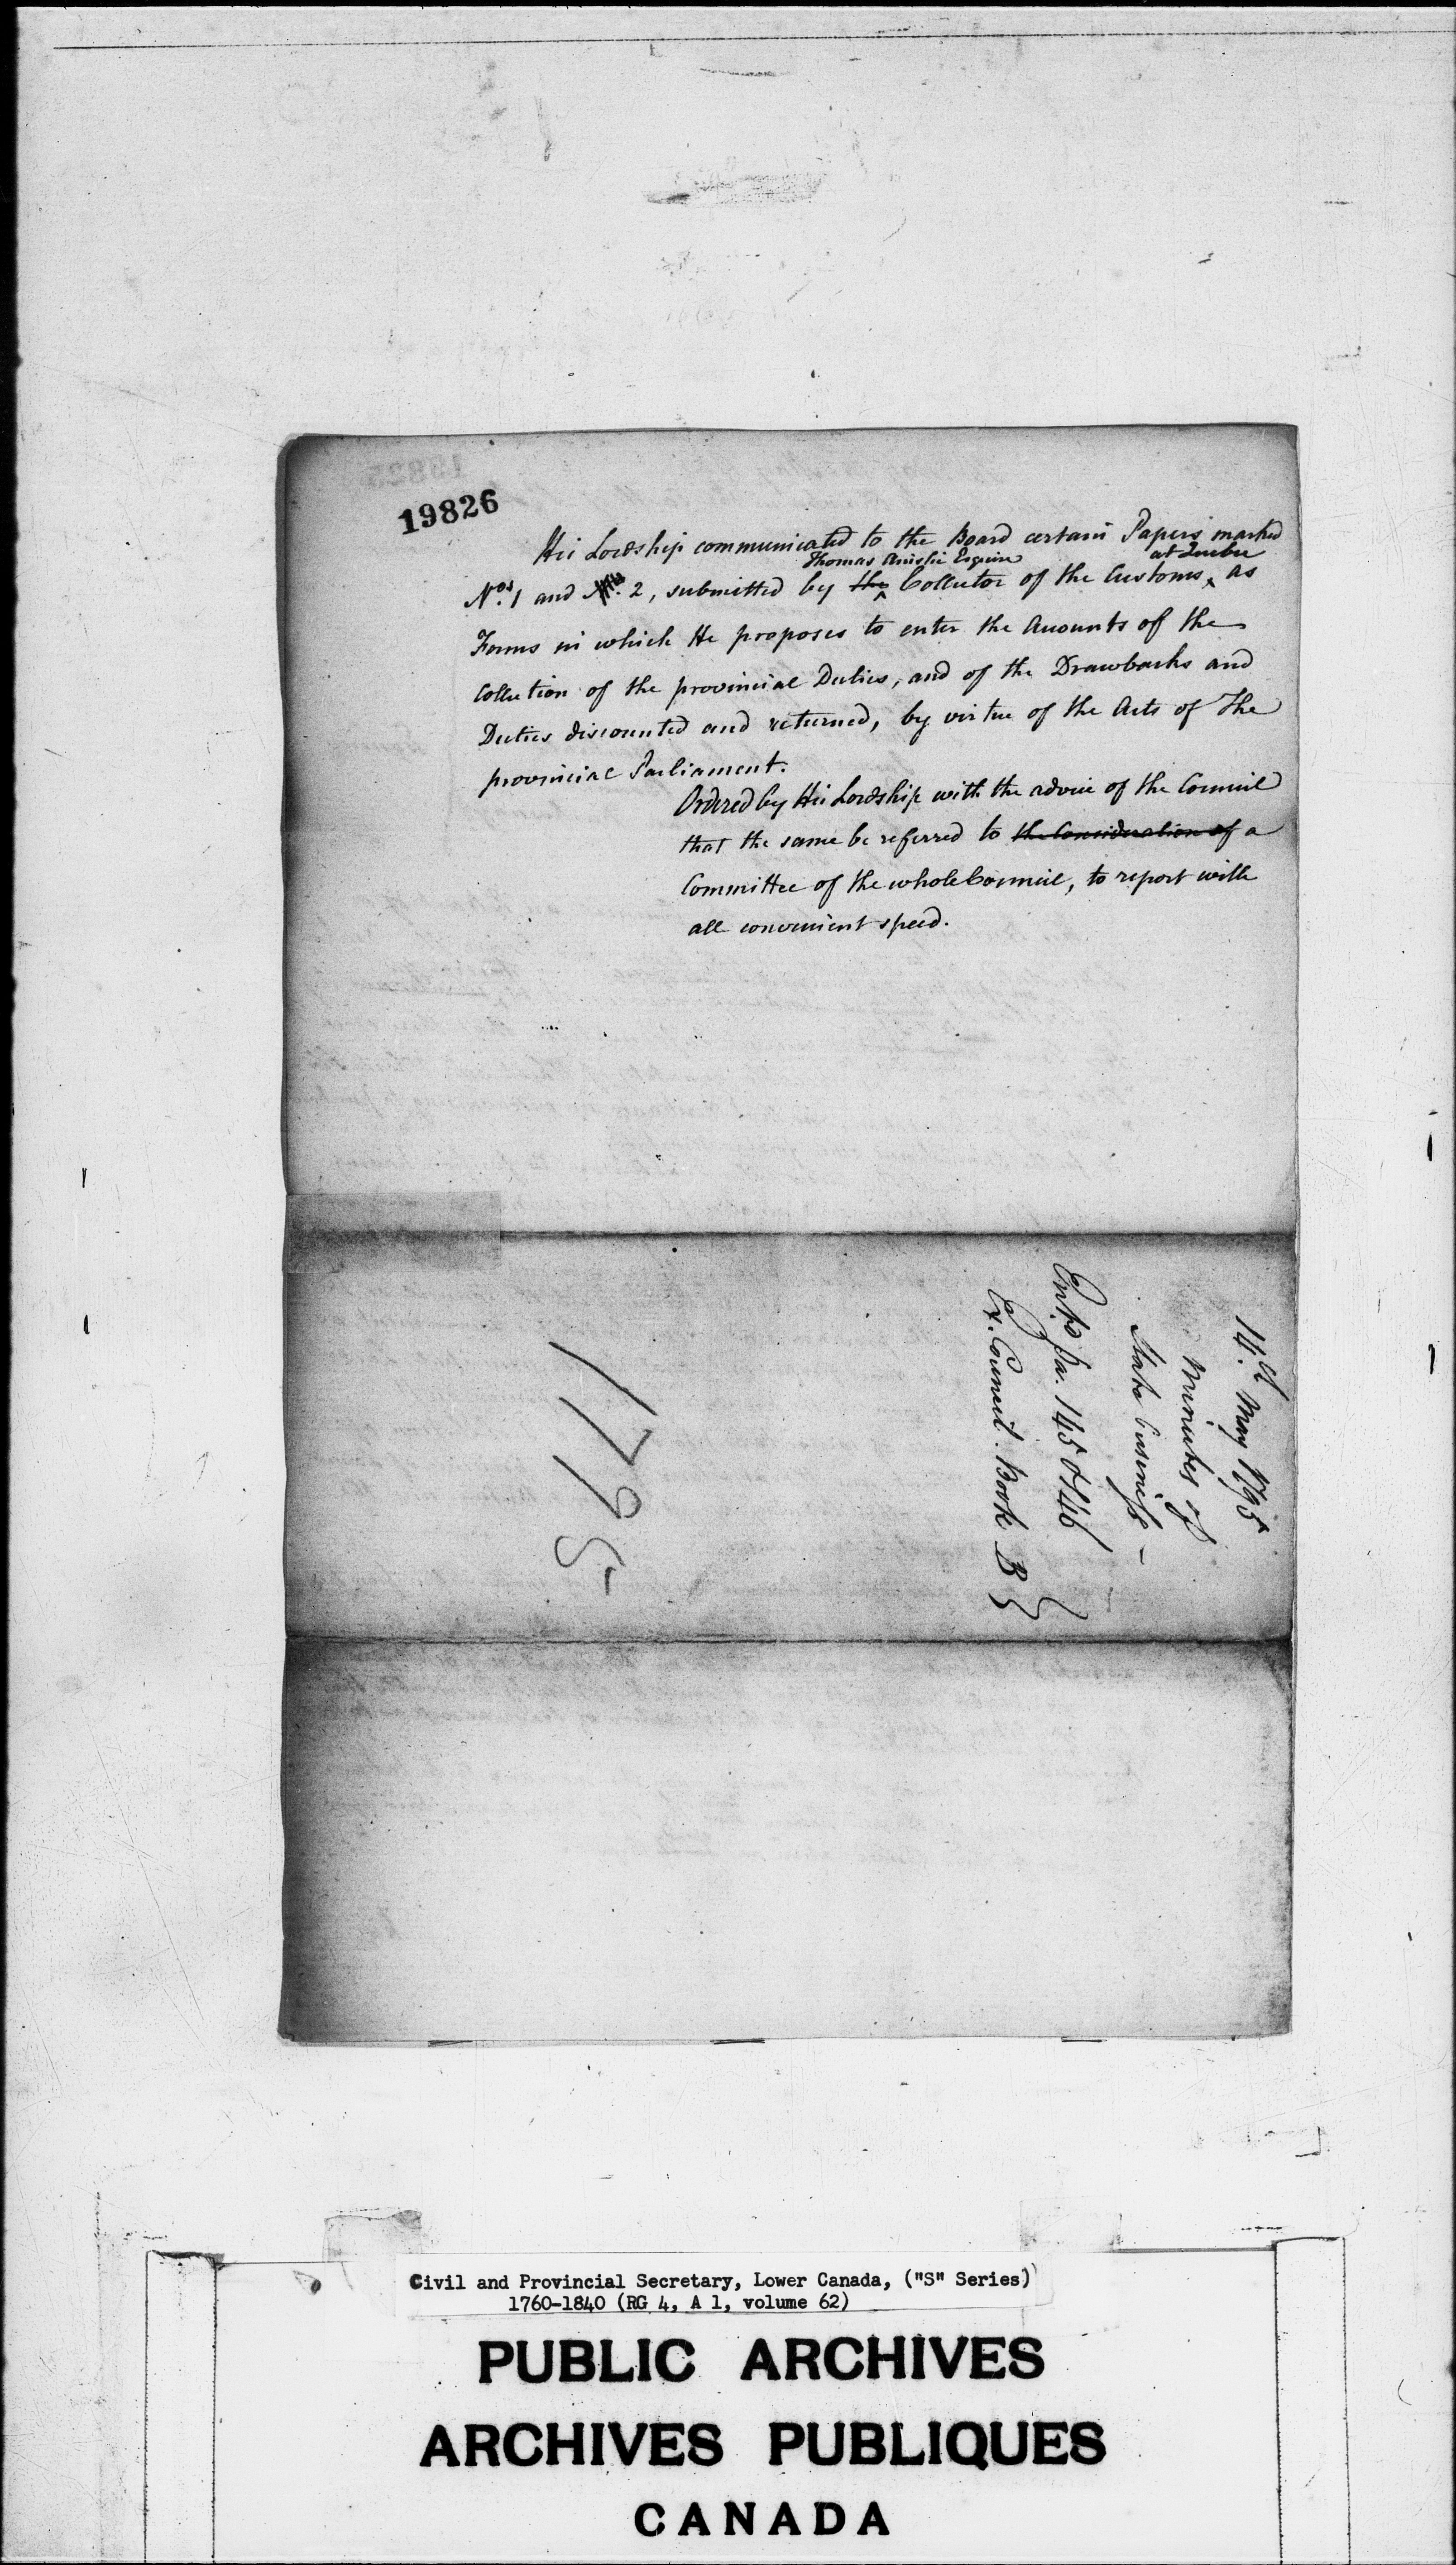 19826
His Lordship communicated to the Board certain Papers marked
Thomas Ainslie Esquire at Quebec
Nos. 1 and No. 2, submitted by the Collector of the Customs, as
Forms in which He proposes to enter the Accounts of the
Collection of the provincial Duties, and of the Drawbacks and
Duties discounted and returned, by virtue of the Acts of The
provincial Parliament.
Ordered by His Lordship with the advice of the Council
that the same be referred to the Consideration of a
Committee of the whole Council, to report with
all convenient speed.
14th May 1795
Minutes of
State business -
Entd. Pa. 145 & 146
Ex. Council Book B
1795
Civil and Provincial Secretary, Lower Canada, ("S" Series)
1760-1840 (RG 4, A 1, volume 62)
PUBLIC ARCHIVES
ARCHIVES PUBLIQUES
CANADA